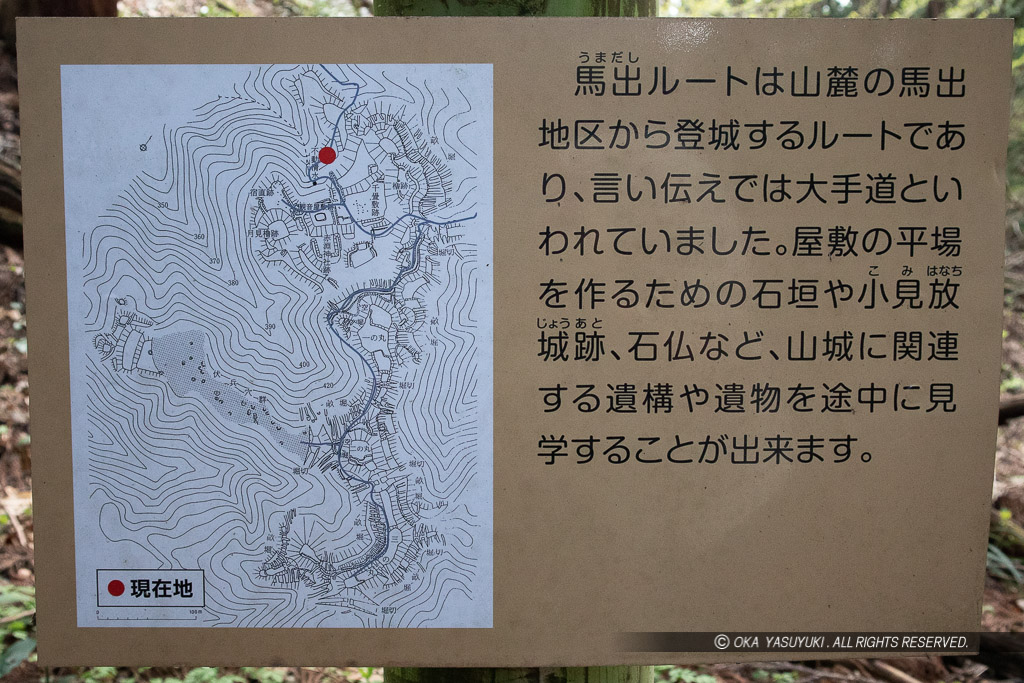 うまだし
馬出ルートは山麓の馬出
地区から登城するルートであ
り、言い伝えでは大手道とい
われていました。屋敷の平場
こ み はなち
を作るための石垣や小見放
じょう あと
城跡、石仏など、山城に関連
する遺構や遺物を途中に見
学することが出来ます。
堀
畝
宿直跡
月見櫓跡
350
360
370
380
390
400
420
堀切
畝
堀
一の丸
堀切
伏兵穴群
畝 堀
二の丸
堀切
堀切
畝
堀
畝
堀
堀切
畝
堀
堀切
現在地
0 100m
© OKA YASUYUKI . ALL RIGHTS RESERVED.